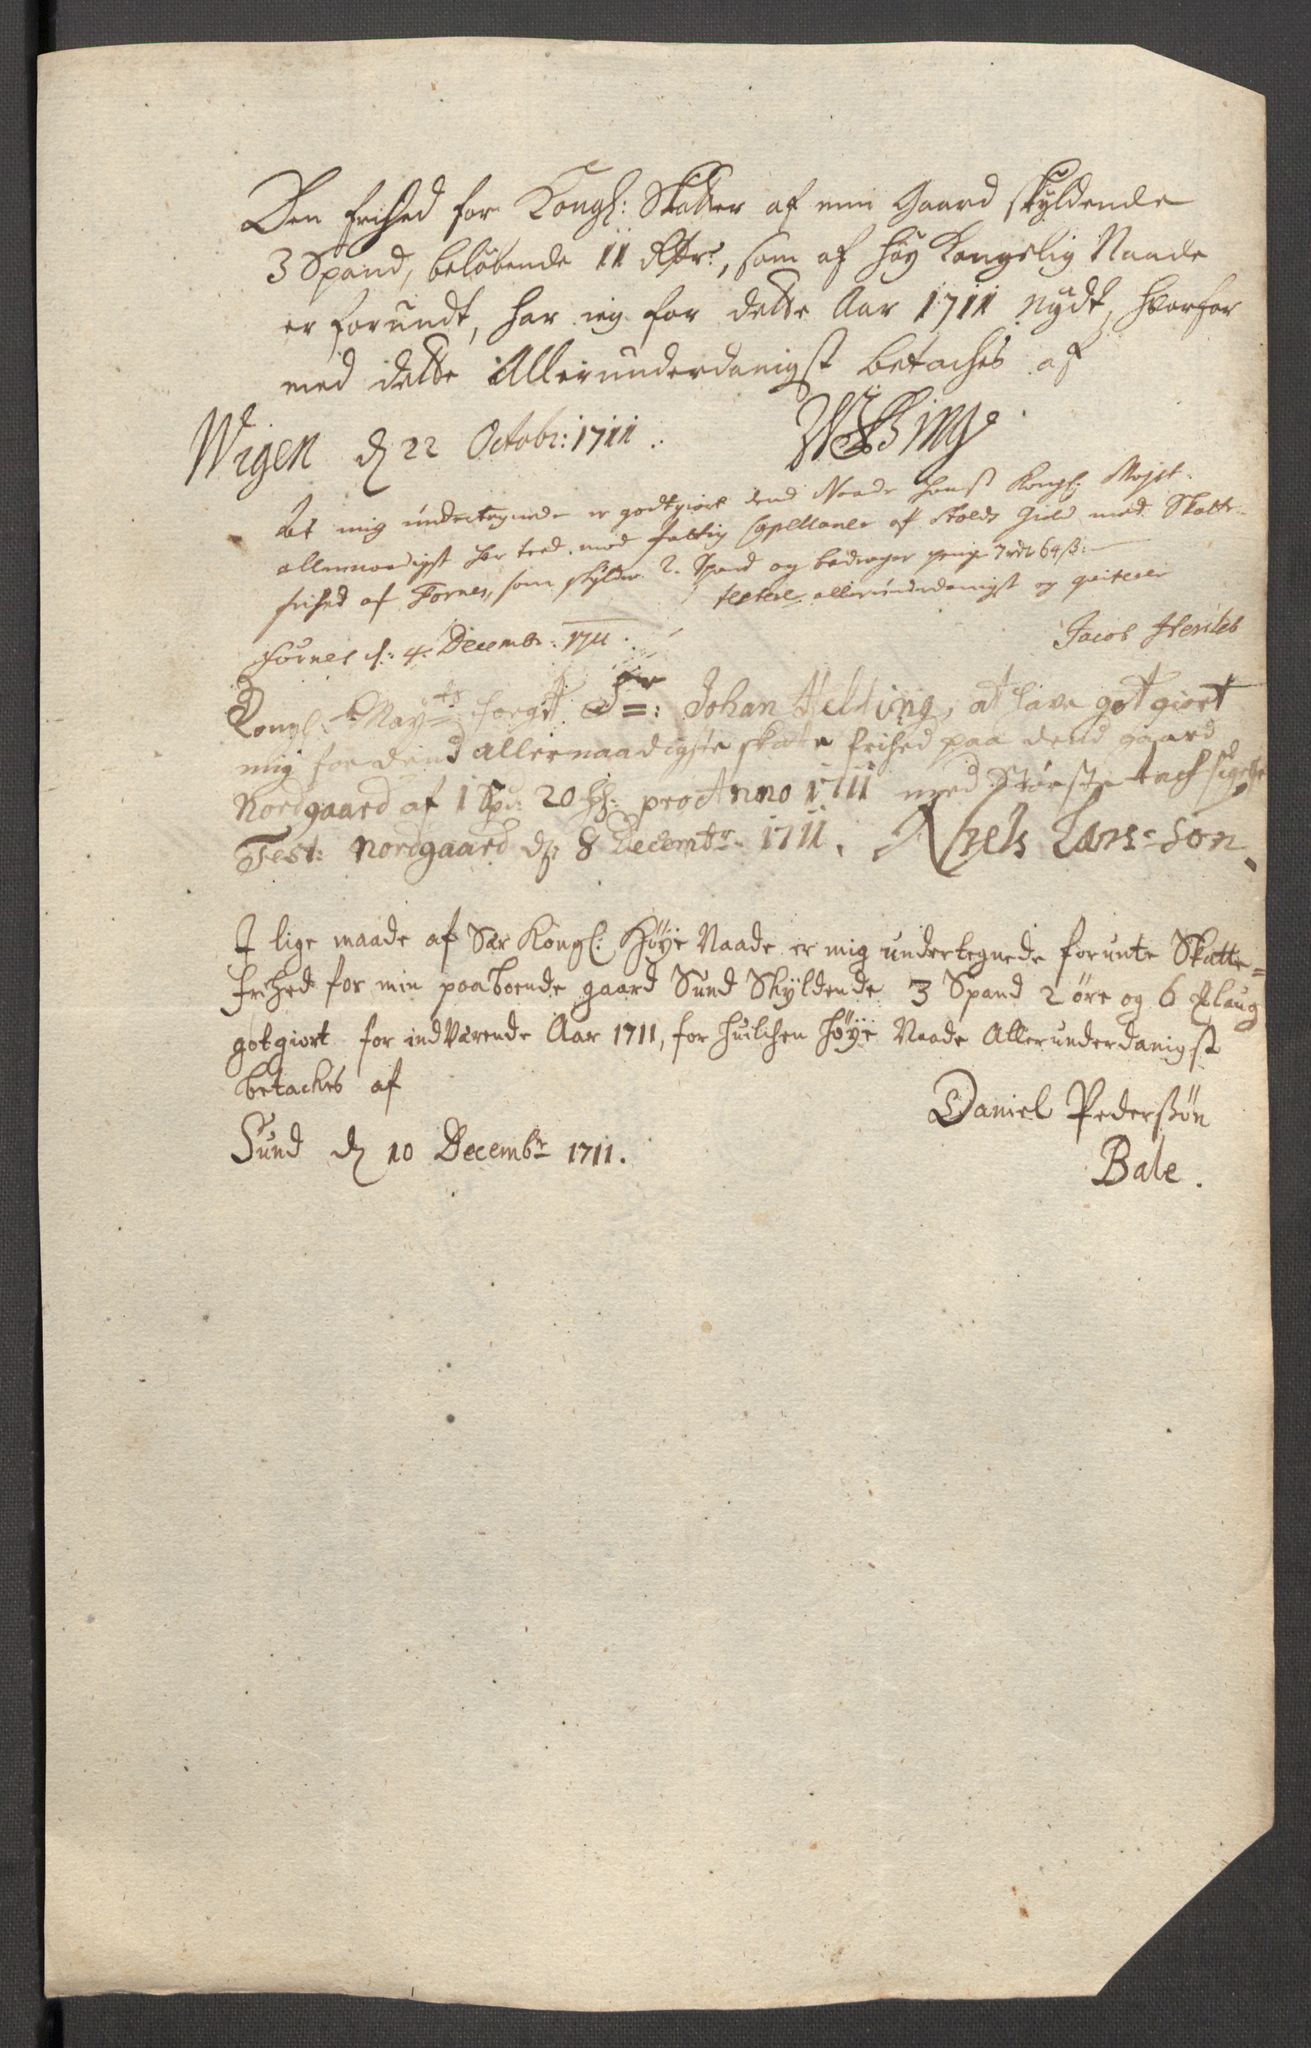 Den frihed for Kongl: Skatter af min Gaard skyldende
3 Spand, beløbende 11 Rdr, som af høy Kongelig Naade
er forundt, har ieg for dette Aar 1711 nydt, hvorfor
med dette Allerunderdanigst betaches af
Wigen d 22 Octobr: 1711.
At mig undertegnede er godtgiort dend Naade hans Kongl: Mayst.
allernaadigst har med Capellaner af Stods Gield med Skatte-
frihed af Fornes, som skylder 2. Spand og bedrager penge 7 rdr 64 ß:
testerer allerunderdanigst og qviterer
Fornes d: 4. Decembr: 1711.
Jacob Hersleb
Kongl. Mayts fogit Sr: Johan Helting, at have got giort
mig for dend allernaadigste skatte frihed paa dend gaard
Nordgaard af 1 Spd: 20 pro Anno 1711 med Største tachsigelse
Test: Nordgaard d 8 Decembr. 1711. Niels Lars=Son
I lige maade af Sær Kongl: Høye Naade er mig undertegnede forunte Skatte=
frihed for min paaboende gaard Sund Skyldende 3 Spand 2 øre og 6 Mlaug
gotgiort for indværende Aar 1711, for huilchen høye Naade Allerunderdanigst
betaches af
Daniel Pederssøn
Sund d 10 Decembr 1711.
Bale.